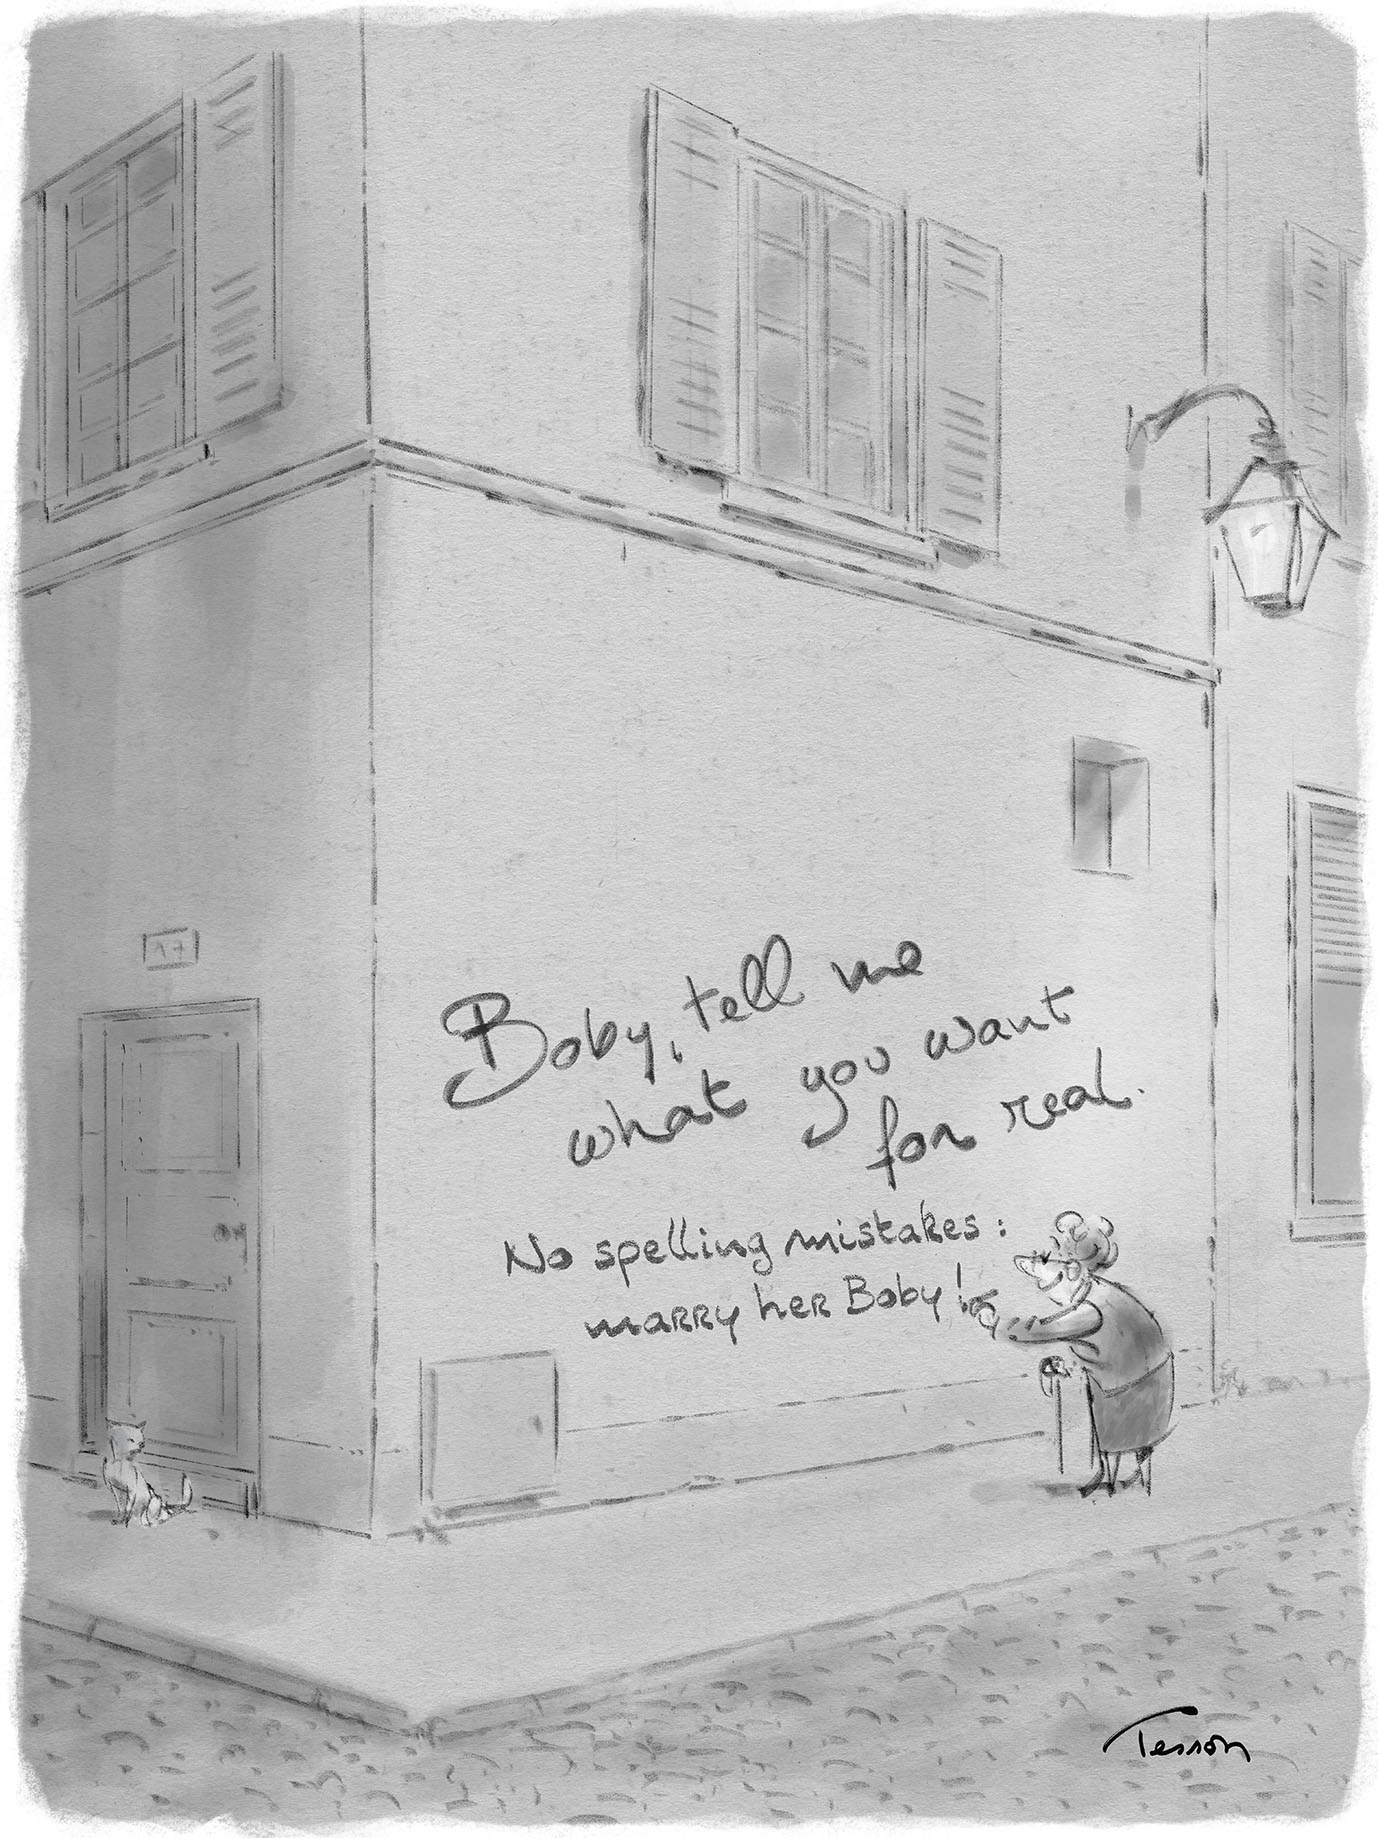 17
Boby, tell me
what you want
for real.
No spelling mistakes:
marry her Boby!
Tesson